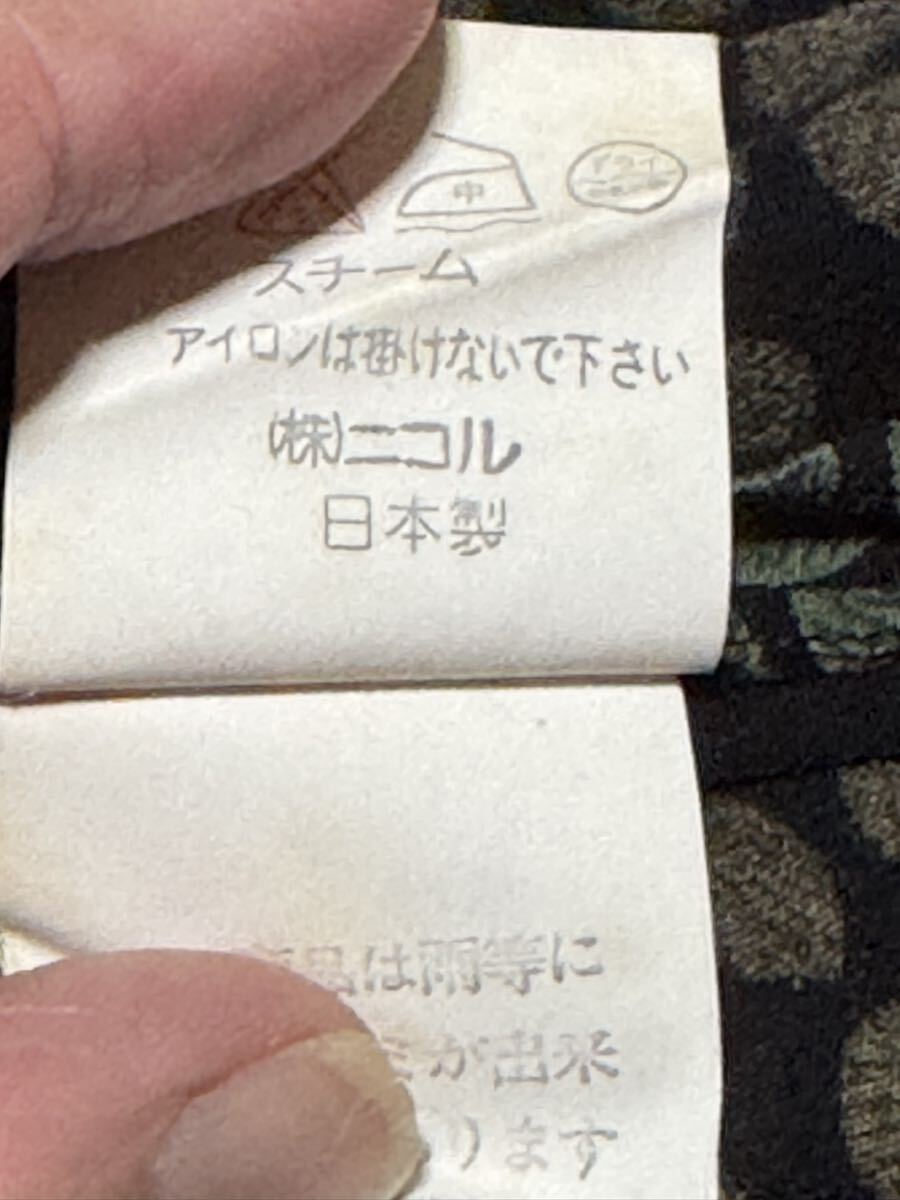 中
ドライ
スチーム
アイロンは掛けないで下さい
(株)ニコル
日本製
品は雨等に
が出来
ります